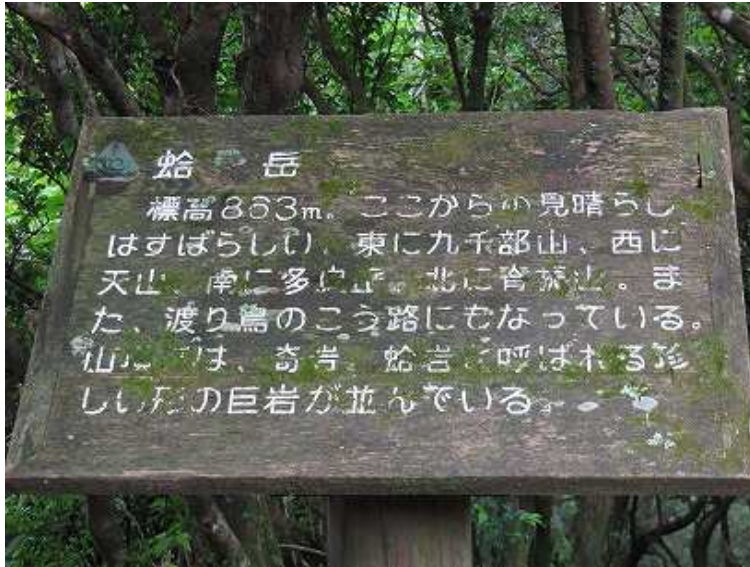 蛤 岳
標高863m。ここからの見晴らし
はすばらしい、東に九千部山、西に
天山、南に多良岳。北に脊振山。ま
た、渡り鳥のこう路にもなっている。
山 は、奇岩。蛤岩と呼ばれる珍
しい形の巨岩が並んでいる。